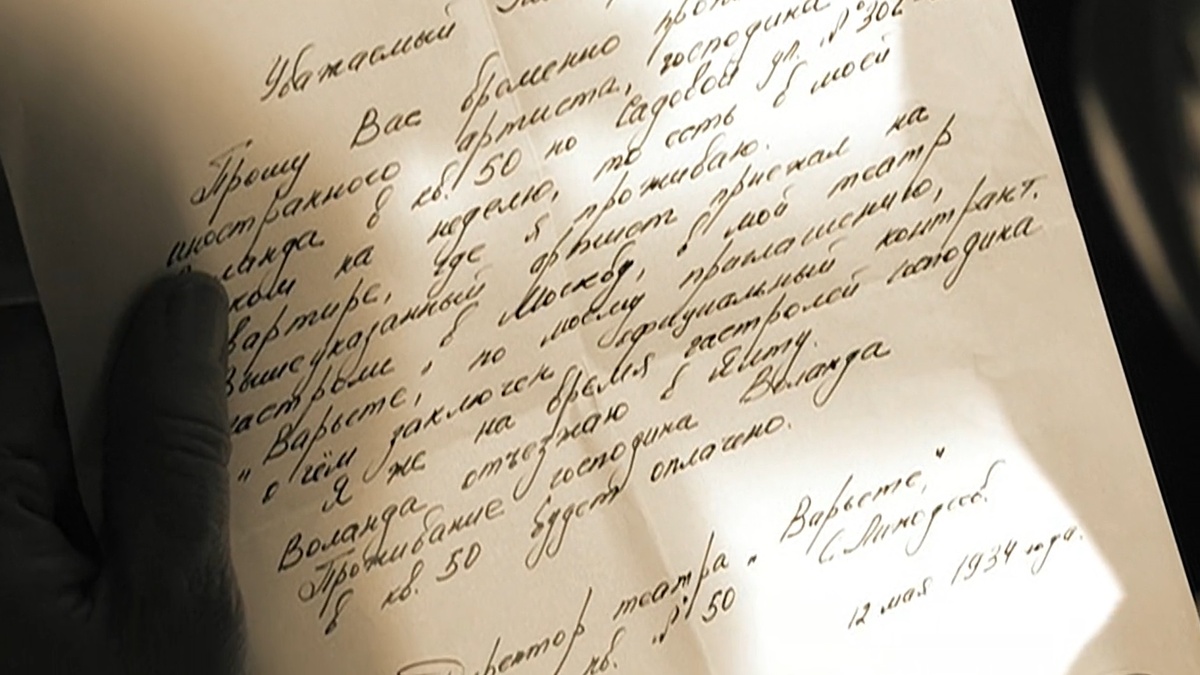 Уважаемый
Прошу Вас временно
иностранного артиста, господина
ланда в кв. 50 по Садовой ул. № 302
ком на неделю, то есть в моей
вартире, где я проживаю.
Вышеуказанный артист приехал на
гастроли в Москву, в мой театр
"Варьете, по моему приглашению,
о чём заключен официальный контракт.
Я же на время гастролей господина
Воланда отъезжаю в Ялту.
Проживание господина Воланда
в кв. 50 будет оплачено.
Директор театра „Варьете,"
кв. № 50 С. Лиходеев.
12 мая 1934 года.